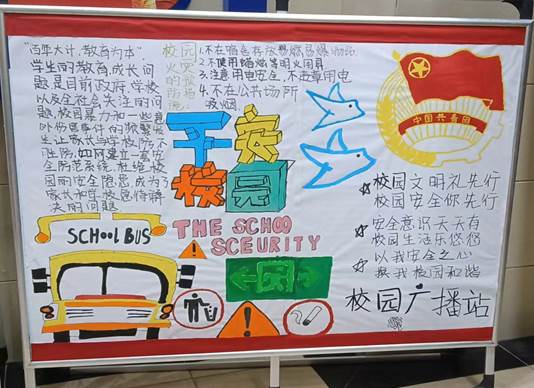 "百年大计,教育为本"
学生的教育,成长问
题是目前政府,学校
以及全社会关注的问
题,校园暴力和一些意
外伤害事件的频繁发
生让家长与学校防不
胜防,如何建立一套安
全防范系统,杜绝校
园的安全隐患成为了
家长和学校急待解
决的问题
校园火灾的预防措施:
1.不在宿舍存放易燃易爆物品
2.不使用蜡烛等明火用具
3.注意用电安全,不违章用电
4.不在公共场所
吸烟
平安
校园
中国共青团
SCHOOL BUS
THE SCHOO
SCEURITY
校园文明礼先行
校园安全你先行
安全意识天天有
校园生活乐悠悠
以我安全之心
换我校园和谐
校园广播站